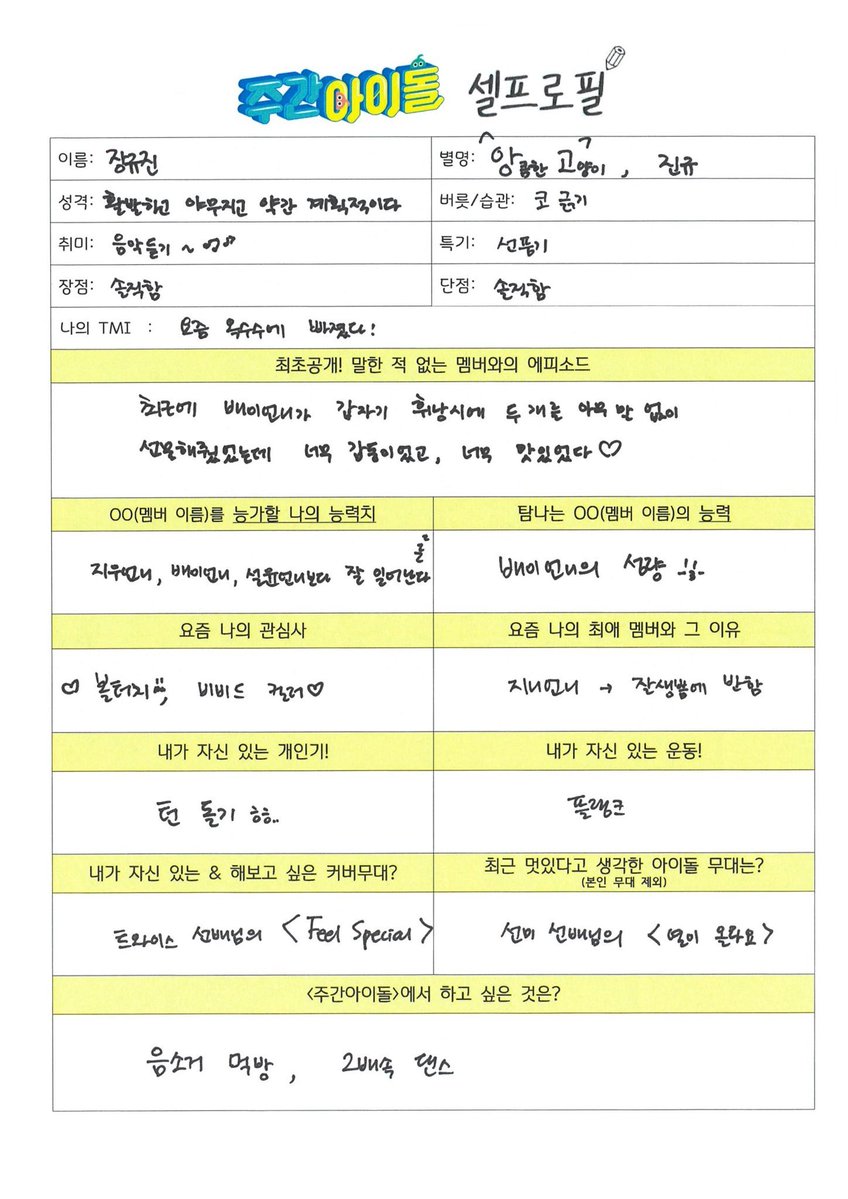 주간아이돌 셀프로필
이름: 장규진
별명: 앙큼한 고양이, 진규
성격: 활발하고 야무지고 약간 계획적이다
버릇/습관: 코 긁기
취미: 음악듣기 ~
특기: 선풍기
장점: 솔직함
단점: 솔직함
나의 TMI : 요즘 옥수수에 빠졌다!
최초공개! 말한 적 없는 멤버와의 에피소드
최근에 배이언니가 갑자기 휘낭시에 두 개를 아무 말 없이
선물해줬었는데 너무 감동이었고, 너무 맛있었다♡
OO(멤버 이름)를 능가할 나의 능력치
탐나는 OO(멤버 이름)의 능력
지우언니, 배이언니, 설윤언니보다 잘 일어난다
배이언니의 성량
요즘 나의 관심사
요즘 나의 최애 멤버와 그 이유
♡ 볼터치, 비비드 컬러♡
지니언니 → 잘생쁨에 반함
내가 자신 있는 개인기!
내가 자신 있는 운동!
턴 돌기 하하..
플랭크
내가 자신 있는 & 해보고 싶은 커버무대?
최근 멋있다고 생각한 아이돌 무대는?
(본인 무대 제외)
트와이스 선배님의 <Feel Special>
선미 선배님의 <열이 올라요>
<주간아이돌>에서 하고 싶은 것은?
음소거 먹방, 2배속 댄스